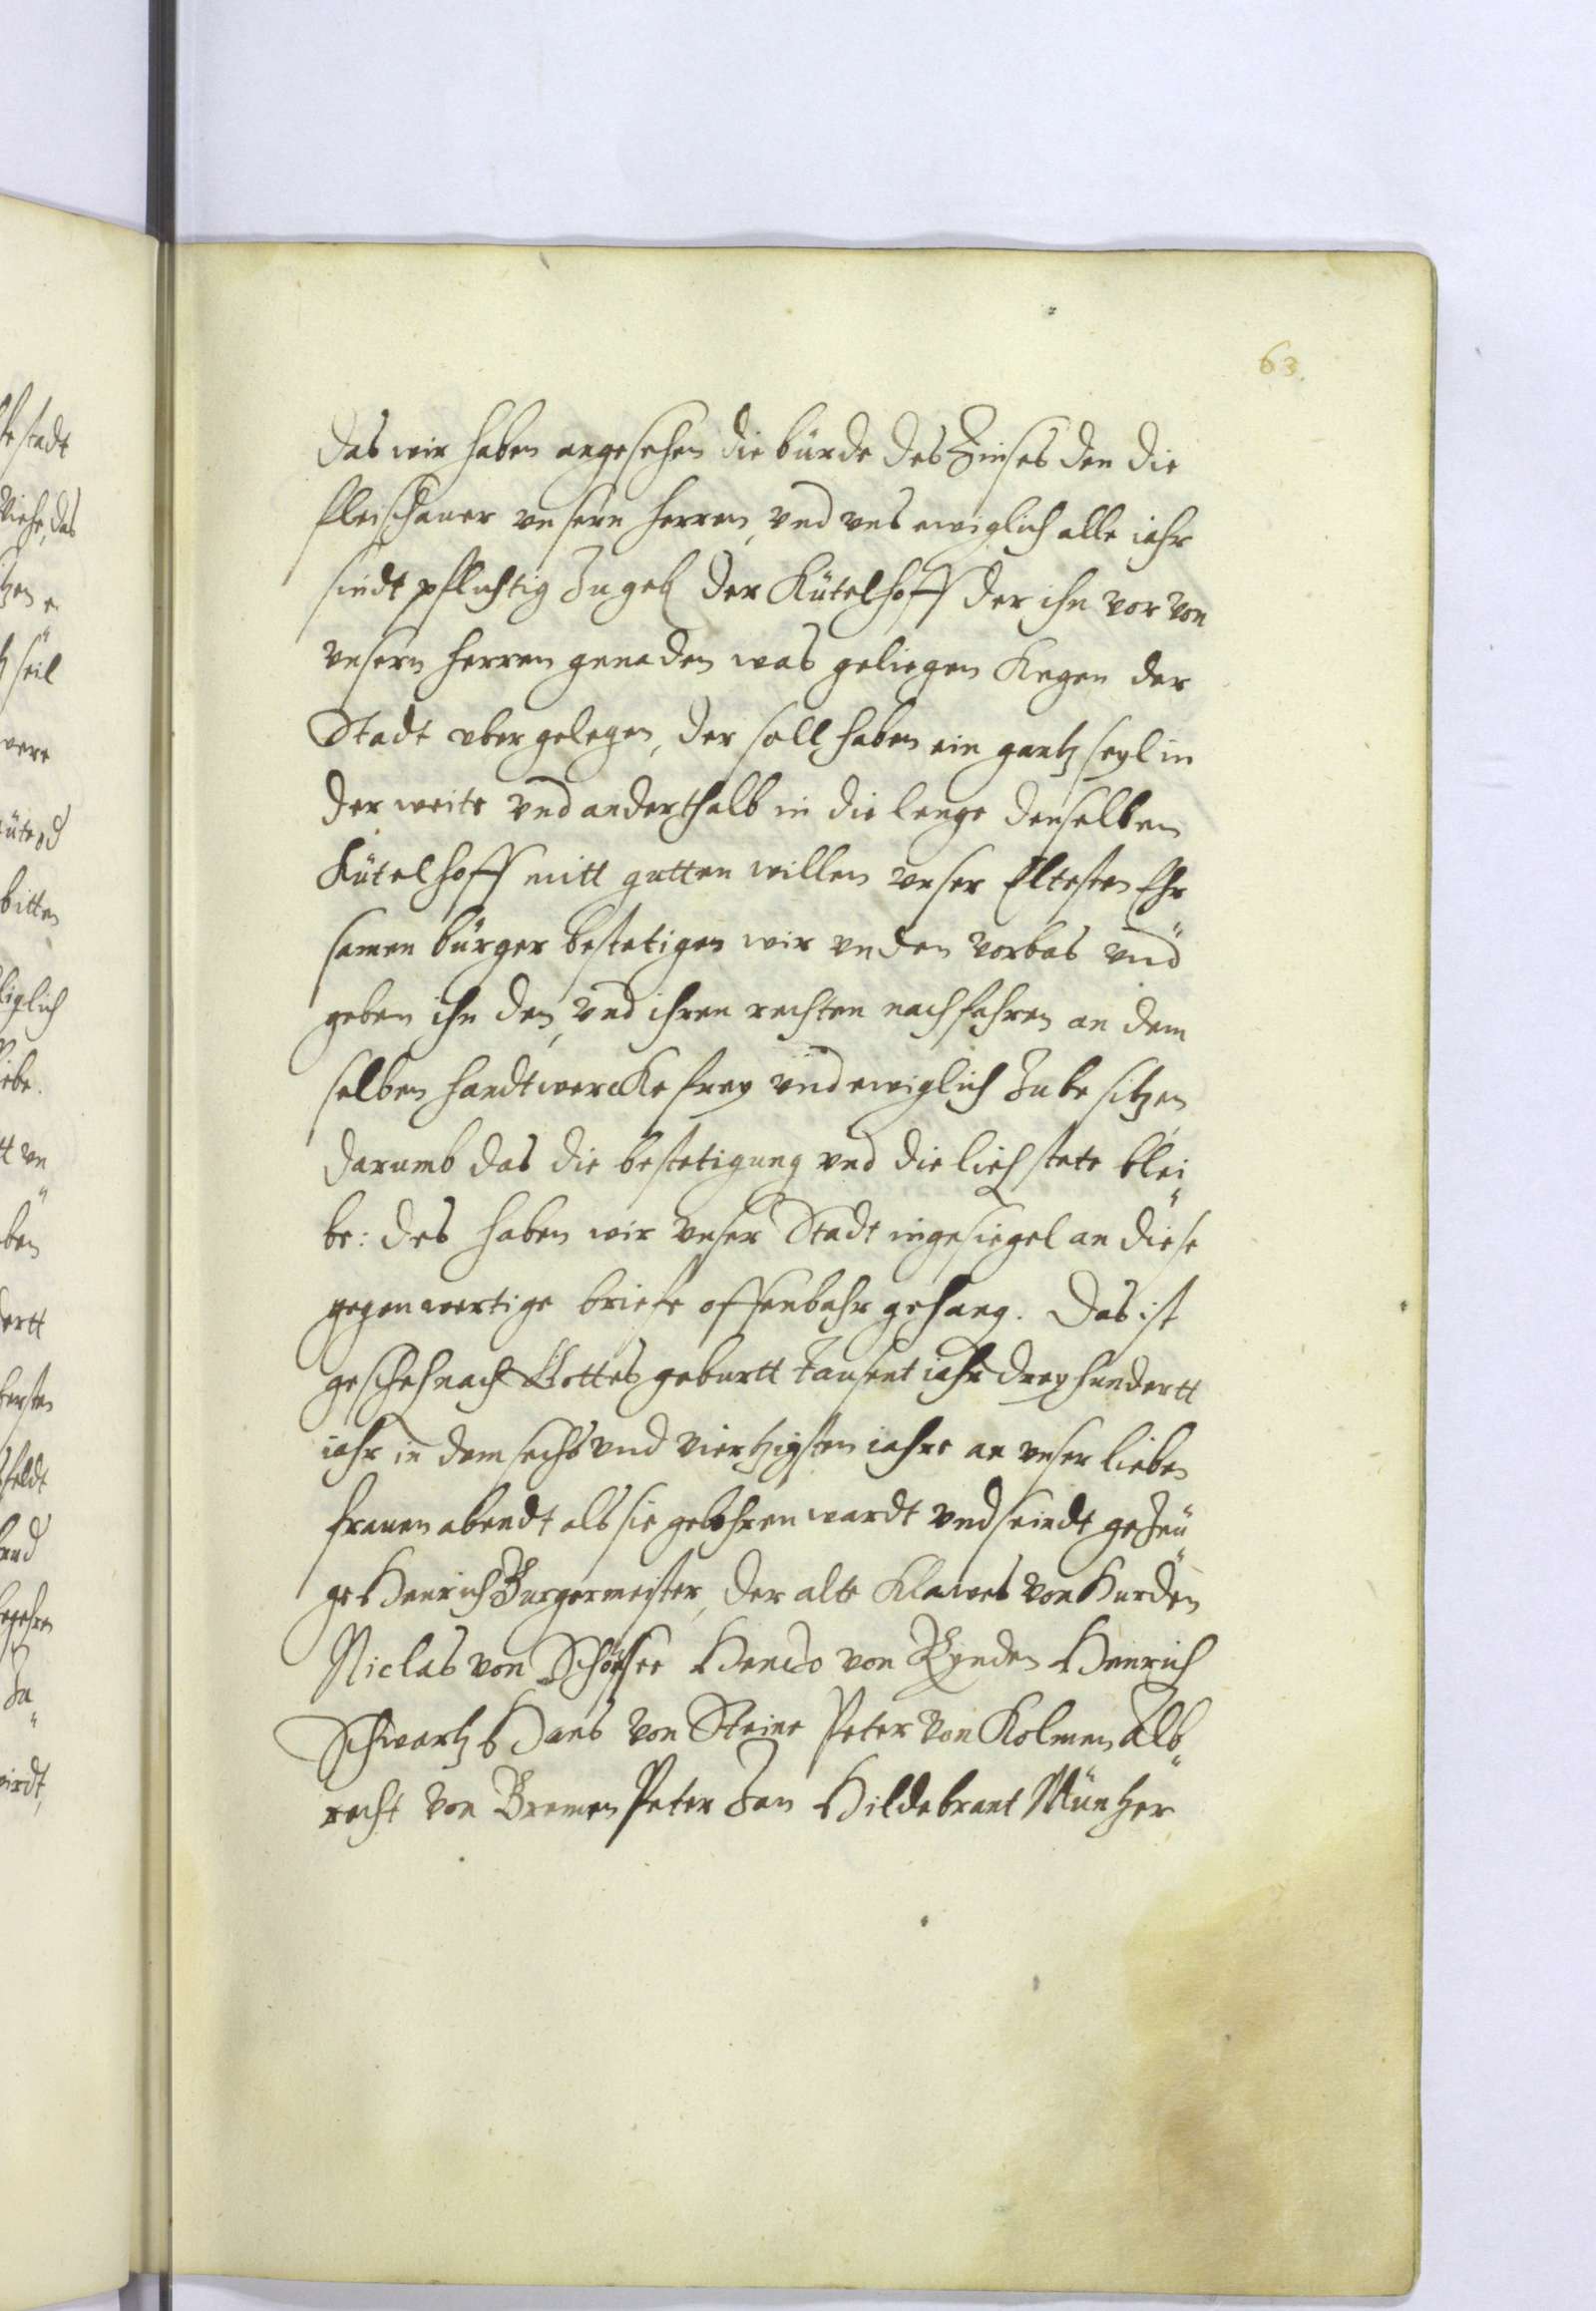 63.
das wir haben angesehen die bürde des Zinses den die
fleischauer unsern herren, vnd vns ewiglich alle iahr
sindt pflichtig Zugeb der Kütelhoff der ihn vor von
vnsern herren genaden was geliegen Kegen der
Stadt vber gelegen, der soll haben ein gantz seyl in
der weite vnd anderthalb in die lenge denselben
Kütelhoff mitt gutten willen vnser Eltesten Ehr
samen bürger bestetigen wir vnden vorbas vnd
geben ihn den, vnd ihren rechten nachfahren an dem
selben handtwercke frey vnd ewiglich Zu besitzen,
darumb das die bestetigung vnd die lieh stete blei
be: des haben wir vnser Stadt ingesiegel an diese
gegenwertige briefe offenbahr gehang. Das ist
gescheh nach Gottes geburtt tausent iahr dreyhundertt
iahr in dem sechs vnd viertzigsten iahre an vnser lieben
frauen abendt als sie gebohren wardt vnd seindt geZeu
ge Henrich Burgermeister, der alte Klawes von Hurden
Niclas von Schönsee von Rynden Henrich
Schwartz Hans von Steine Peter von Kolmen Alb
recht von Bremen Peter Jan Hildebrant Müntzer
stadt
Viehe, das
seil
were
bitten
iglich
ebe.
ben
ertt
ersten
feldt
Zu